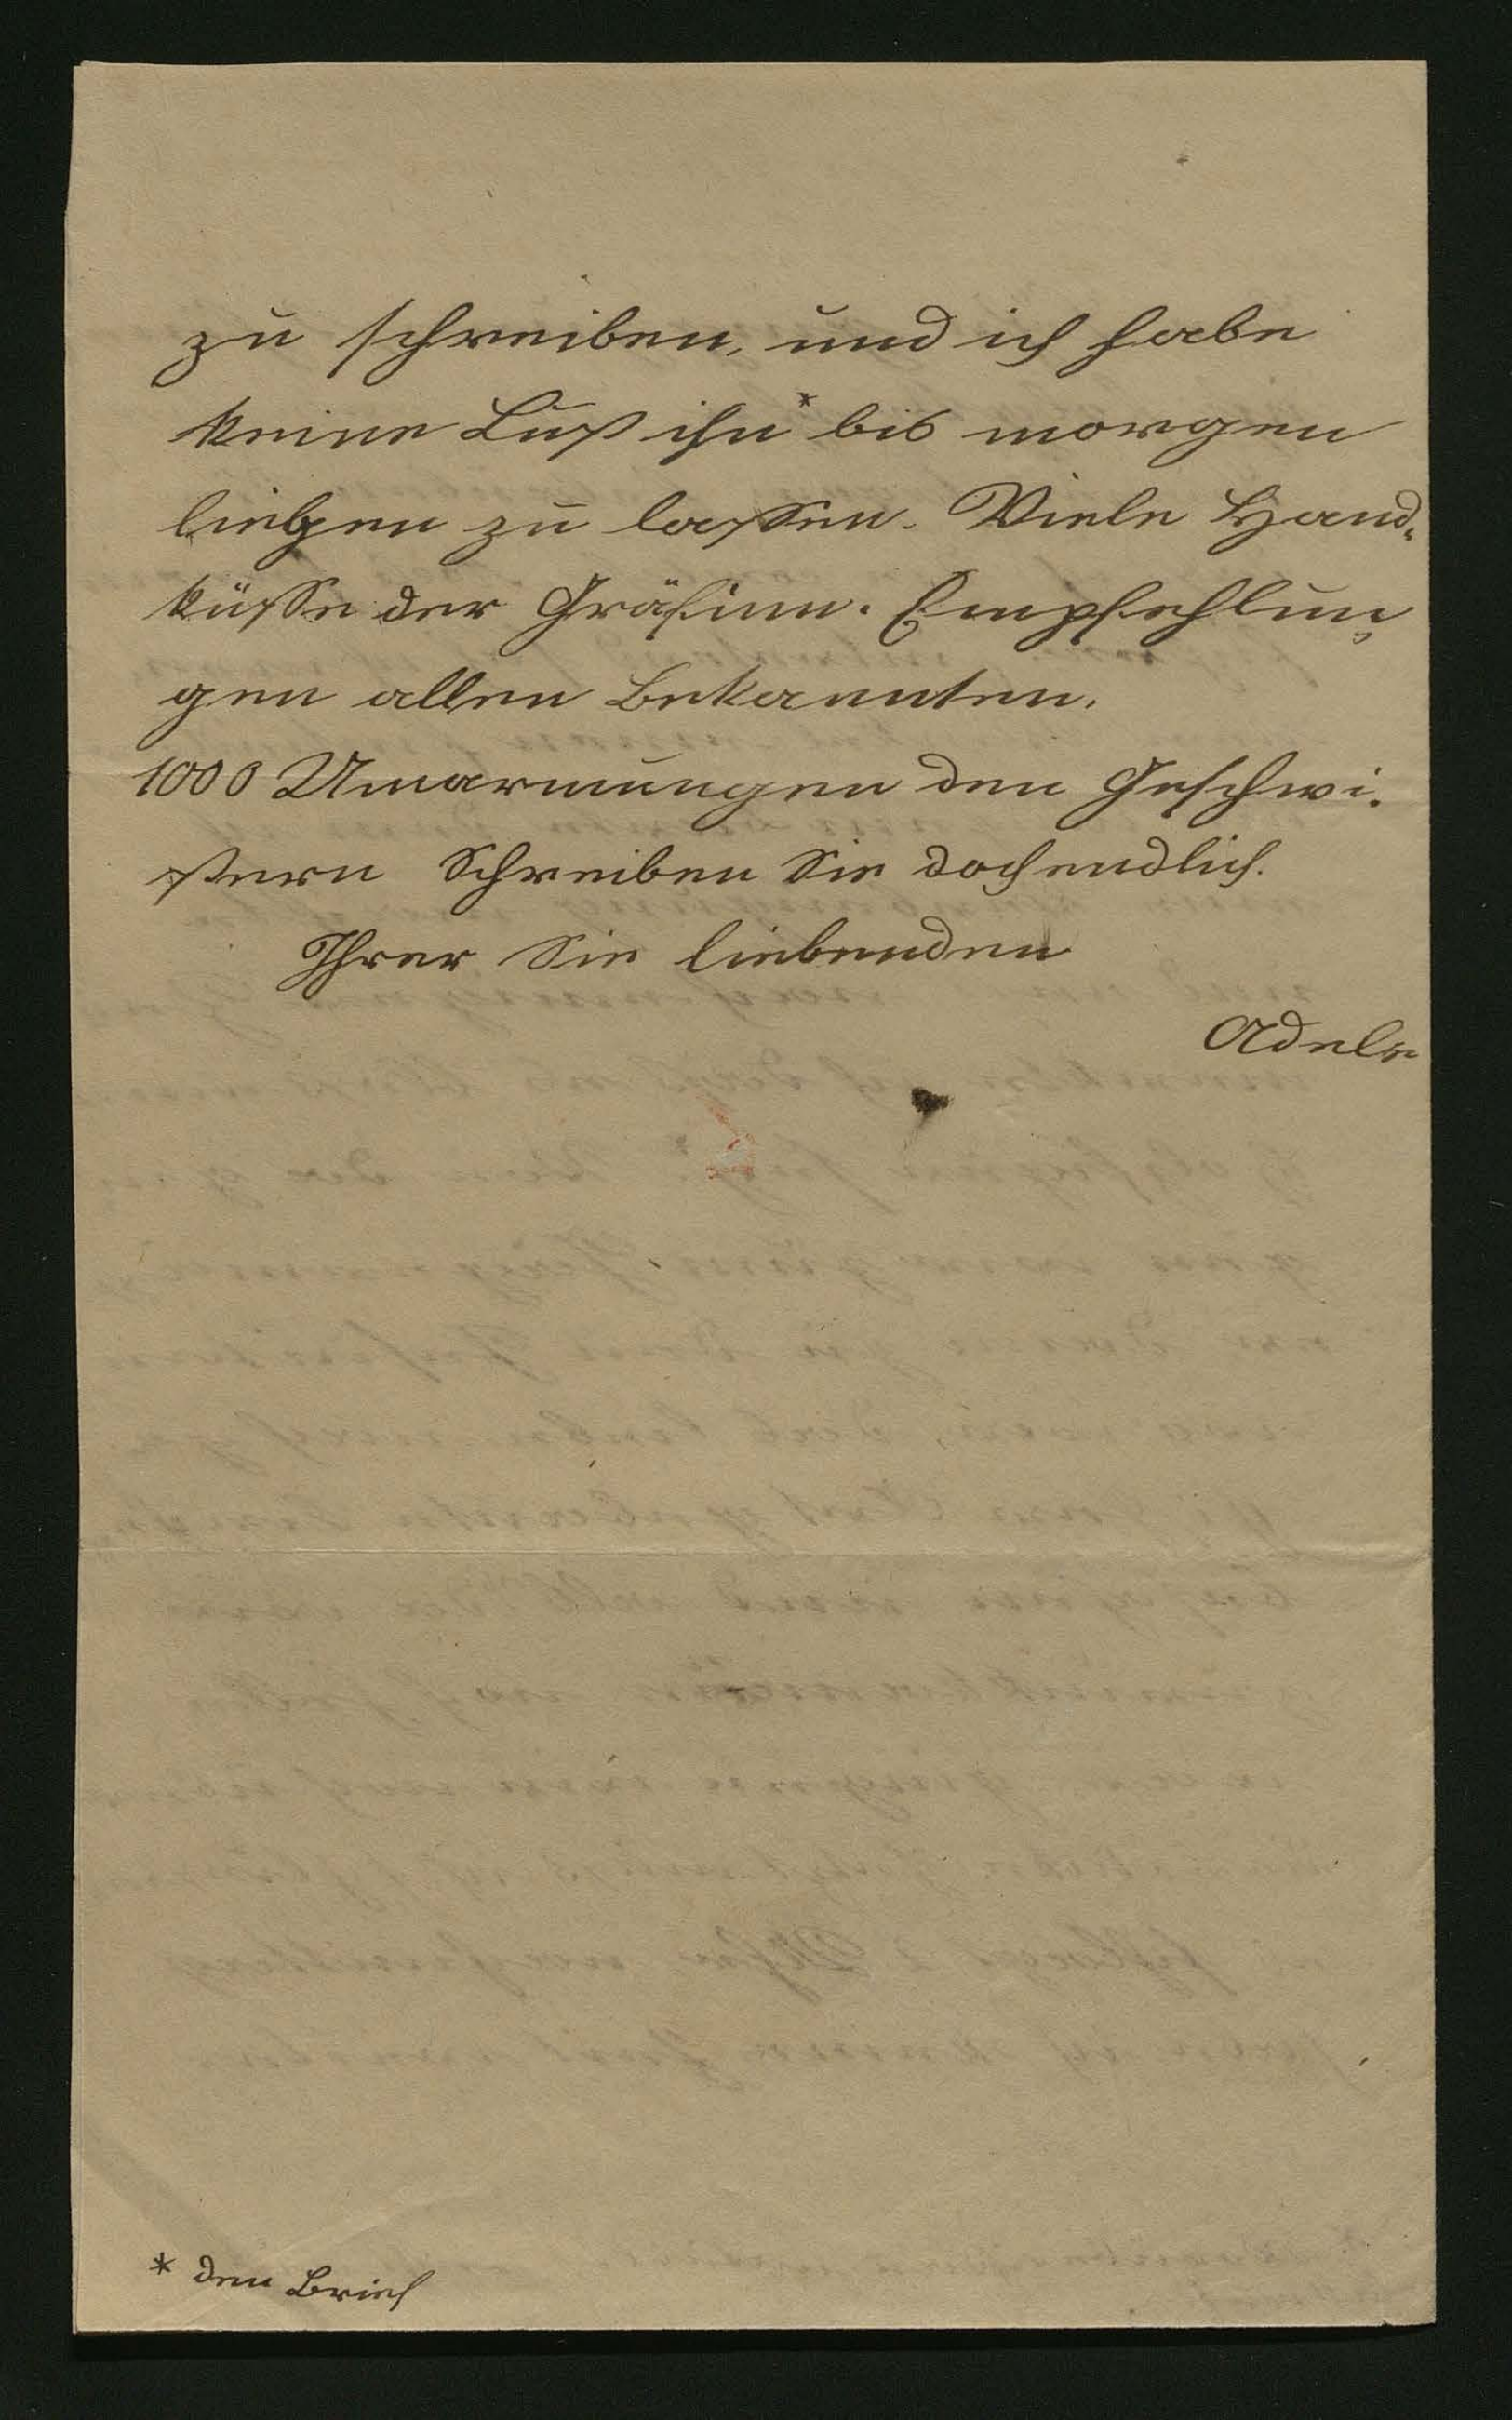 zu schreiben, und ich habe
keine Lust ihn* bis morgen
liegen zu lassen. Viele Hand-
küsse der Gräfinn. Empfehlun-
gen allen Bekannten.
1000 Umarmungen den Geschwi-
stern Schreiben Sie doch endlich.
Ihrer Sie liebenden
Adele
* den Brief